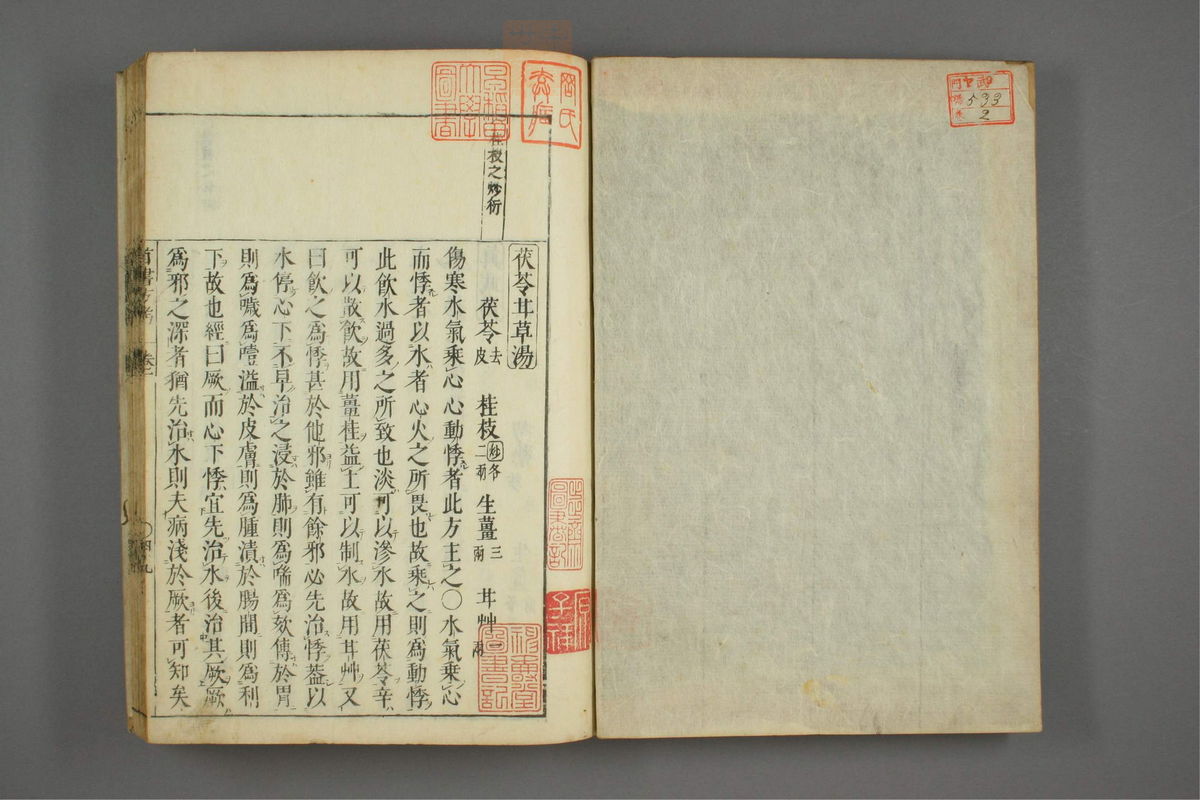 533
2
早稻田
大學
圖書
桂枝之妙衍
茯苓甘草湯
茯苓去皮 桂枝各二兩 生薑三兩 甘艸一兩
傷寒水氣乗心心動悸者此方主之〇水氣乗心
而悸者以水者心火之所畏也故乗之則爲動悸
此飲水過多之所致也淡可以滲水故用茯苓辛
可以散飲故用薑桂益土可以制水故用甘艸又
曰飲之爲悸甚於他邪雖有餘邪必先治悸蓋以
水停心下不早治之浸於肺則爲喘爲欬傳於胃
則爲噦爲噎溢於皮膚則爲腫漬於腸間則爲利
下故也經曰厥而心下悸宜先治水後治其厥厥
爲邪之深者猶先治水則夫病淺於厥者可知矣